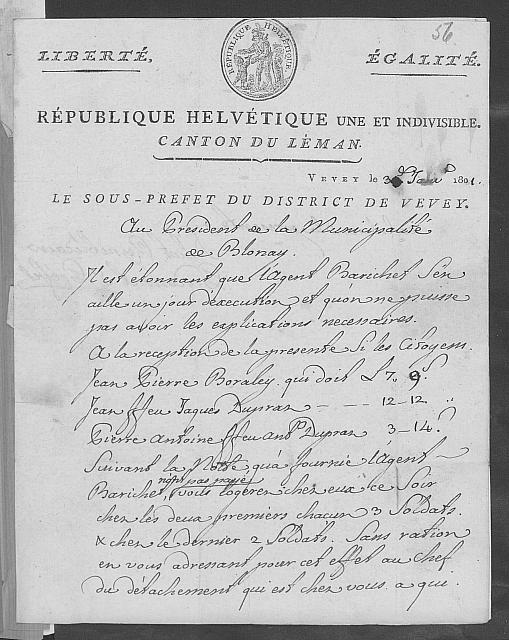 56
LIBERTÉ,
RÉPUBLIQUE HELVÉTIQUE
ÉGALITÉ.
RÉPUBLIQUE HELVÉTIQUE UNE ET INDIVISIBLE.
CANTON DU LÉMAN.
VEVEY le 1801.
LE SOUS-PREFET DU DISTRICT DE VEVEY.
Au President de la Municipalité
de Blonay.
Il est étonnant que l'Agent Barichet s'en
aille un jour d'éxecution et qu'on ne puisse
pas avoir les explications necessaires.
A la reception de la presente Si les Citoyens
Jean Pierre Boraley qui doit L 7. 9 s.
Jean ffeu Jaques Dupraz — — 12-12 "
Pierre Antoine ffeu Ant. Dupraz 3-14.
Suivant la Notte qu'a fournie l'Agent —
n'ont pas payé
Barichet, vous logeren chez eux ce Soir
chez les deux premiers chacun 3 Soldats.
& chez le dernier 2 Soldats. Sans ration
en vous adressant pour cet effet au Chef
du détachement qui est chez vous. a qui